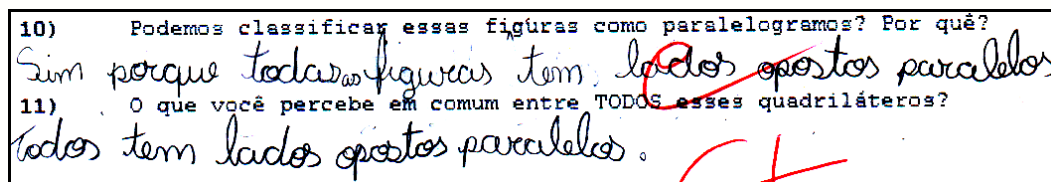 10) Podemos classificar essas figuras como paralelogramos? Por quê?
Sim porque todas as figuras tem lados opostos paralelos
11) O que você percebe em comum entre TODOS esses quadriláteros?
Todos tem lados opostos paralelos.